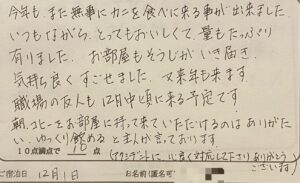 今年も、また無事にカニを食べに来る事が出来ました
いつもながら、とってもおいしくて、量もたっぷり
有りました。お部屋もそうじがいき届き、
気持ち良くすごせました。又来年も来ます。
職場の友人も12月中頃に来る予定です。
朝、コーヒーをお部屋に持って来ていただけるのはありがた
い、ゆっくり飲めると主人が言っております。
10点満点で 10 点
(アクシデントに 良く対応して下さりありがとう
ございます)
ご宿泊日 12月1日
お名前(匿名可